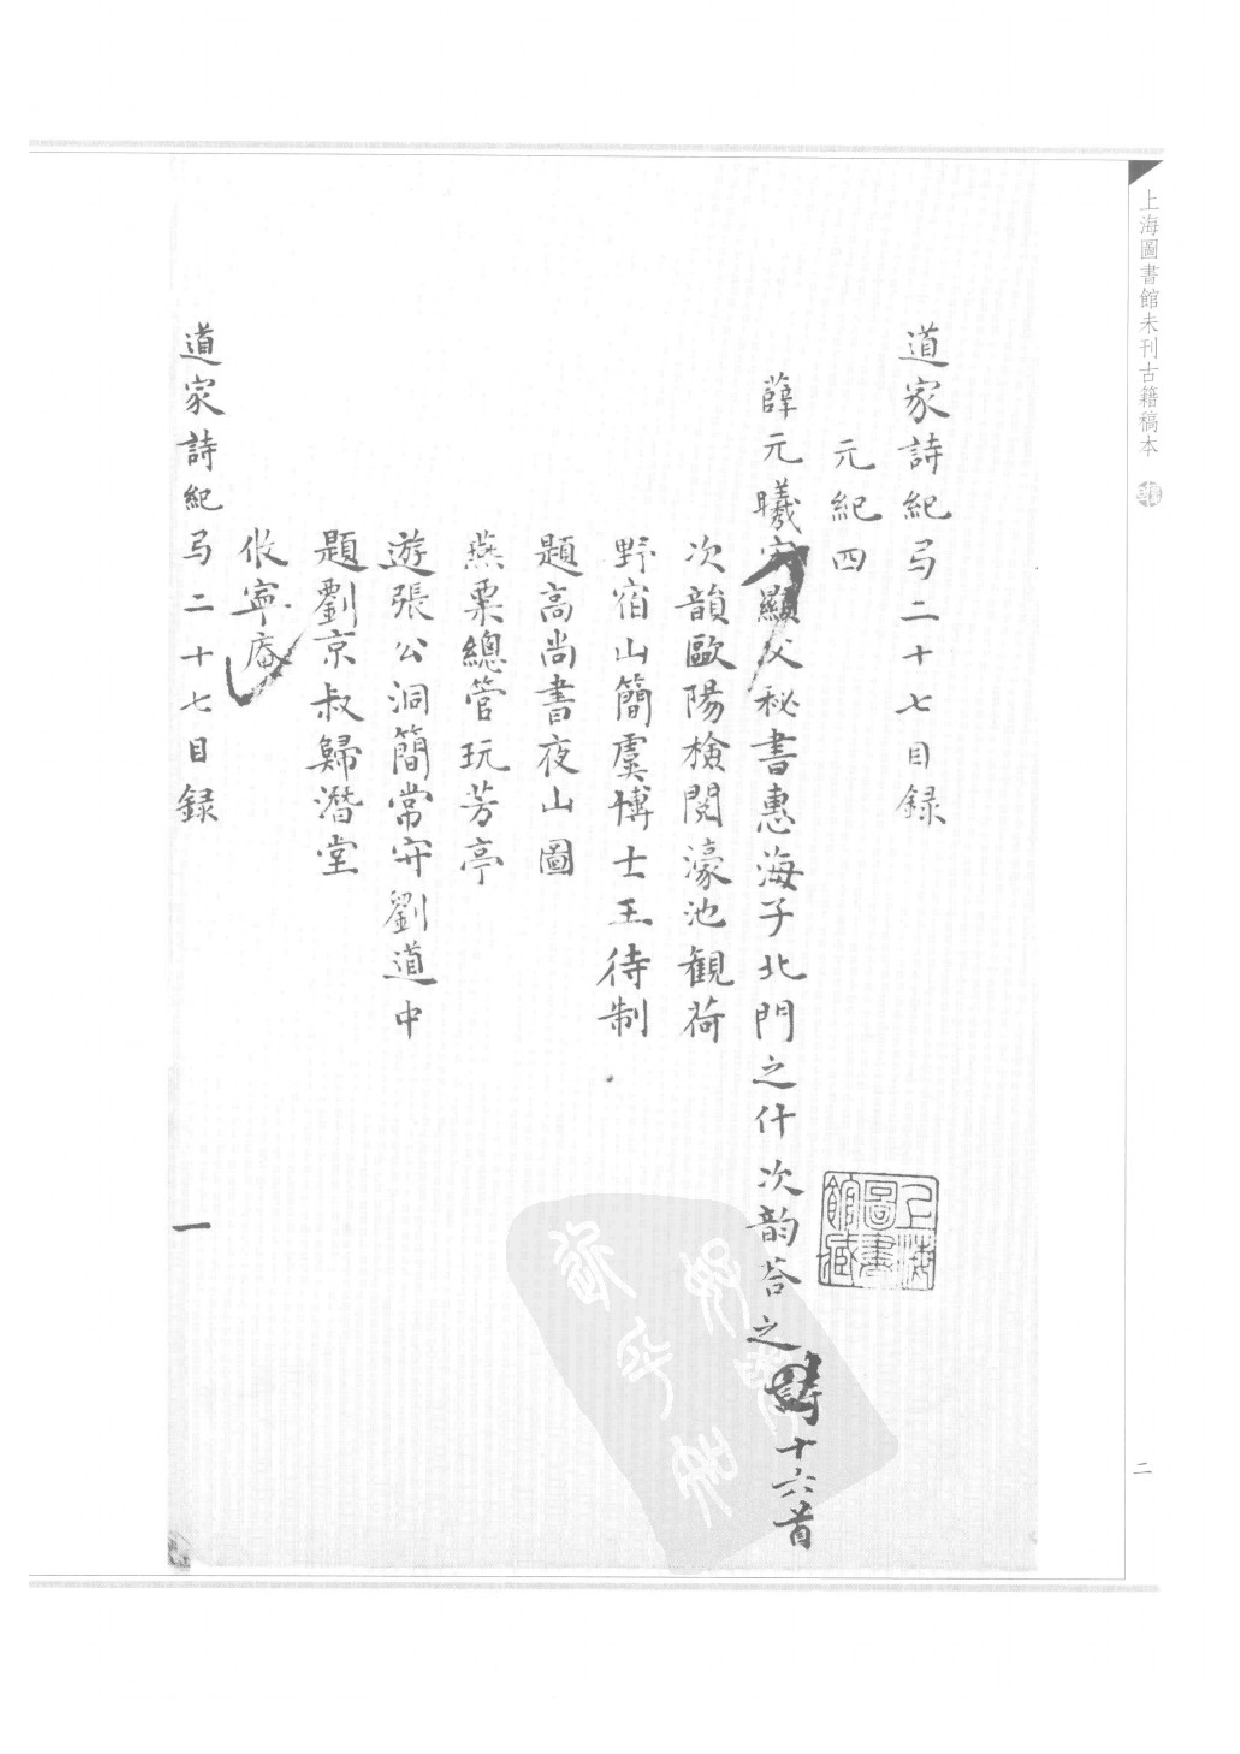 上海圖書館未刊古籍稿本
二
道家詩紀弓二十七目录
元紀四
薛元曦宋顯父秘書惠海子北門之什次韵荅之 十六首
次韻歐陽檢閱濠池観荷
野宿山簡虞博士王待制
題高尚書夜山圖
燕粟總管玩芳亭
遊張公洞簡常安劉道中
題劉京叔歸潛堂
攸寧庵
道家詩紀弓二十七目録
一
上海圖書館藏